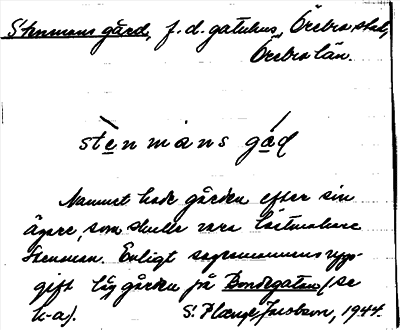 Stenmans gård, f.d. gatuhus, Örebro stad,
Örebro län.
stènmans gád
Namnet hade gården efter sin
ägare, som skulle vara
Stenman. Enligt sagesmannens upp-
gift låg gården på Bondegatan (se
k-a). S. Jacobson, 1944.